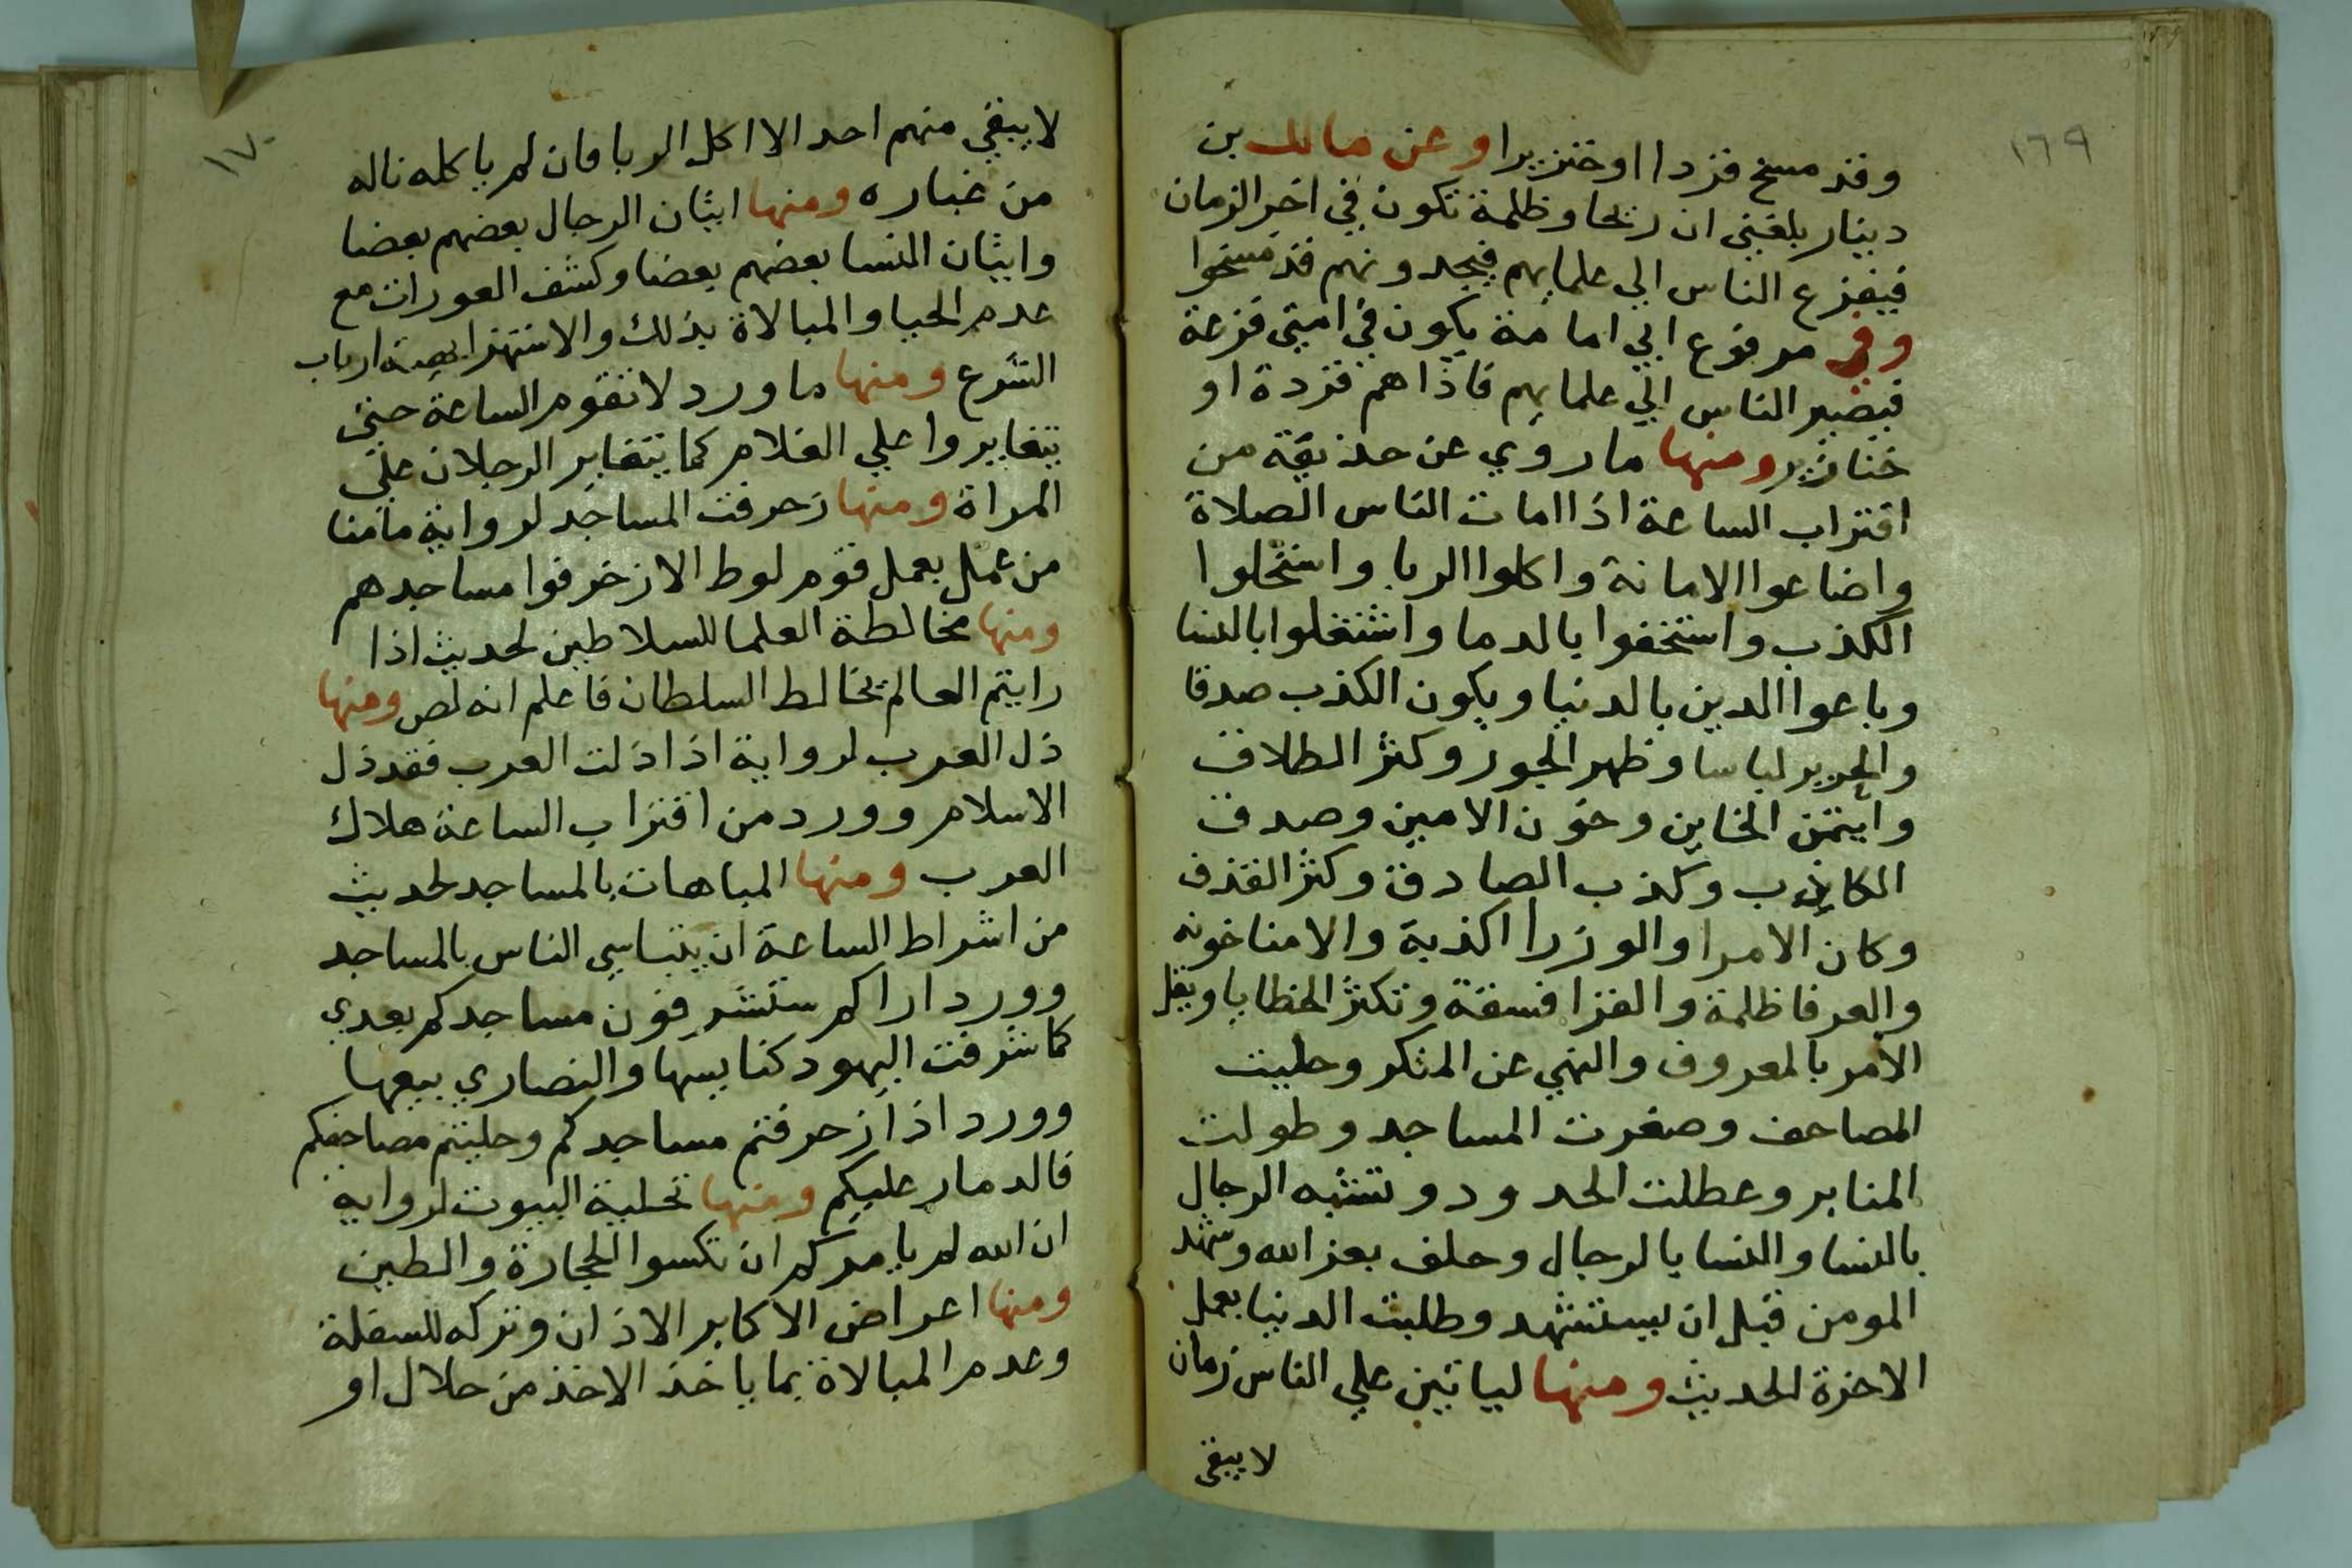 ١٦٩
وقد مسخ قردا او خنزيرا وعن مالك بن
دينار بلغني ان ريحا وظلمة تكون في اخر الزمان
فيفزع الناس الي علمايهم فيجدونهم قد مسخوا
وفي مرفوع ابي امامة يكون في امتي فزعة
فيصير الناس الي علمايهم فاذا هم قردة او
خنازير ومنها ما روي عن حذيفة من
اقتراب الساعة اذا امات الناس الصلاة
واضاعوا الامانة واكلوا الربا واستحلوا
الكذب واستخفوا بالدما واشتغلوا بالنسا
وباعوا الدين بالدنيا ويكون الكذب صدقا
والحرير لباسا وظهر الجور وكثر الطلاق
وايتمن الخاين وخون الامين وصدق
الكاذب وكذب الصادق وكثر القذف
وكان الامرا والوزرا اكذبة والامنا خونه
والعرفا ظلمة والقرا فسقة وتكثر الخطايا ويقل
الامر بالمعروف والنهي عن المنكر وحليت
المصاحف وصغرت المساجد وطولت
المنابر وعطلت الحدود وتشبه الرجال
بالنسا والنسا بالرجال وحلف بعز الله وشهد
المومن قبل ان يستشهد وطلبت الدنيا بعمل
الاخرة الحديث ومنها لياتين علي الناس زمان
لا يبقي
١٧٠
لا يبقي منهم احد الا اكل الربا فان لم ياكله ناله
من غباره ومنها اتيان الرجال بعضهم بعضا
واتيان النسا بعضهم بعضا وكشف العورات مع
عدم الحيا والمبالاة بذلك والاستهزا بهمة ارباب
الشرع ومنها ما ورد لا تقوم الساعة حتي
يتغايروا علي الغلام كما يتغاير الرجلان علي
المراة ومنها زحرفت المساجد لرواية ما منا
من عمل بعمل قوم لوط الا زخرفوا مساجدهم
ومنها مخالطة العلما للسلاطين لحديث اذا
رايتم العالم يخالط السلطان فاعلم انه لص ومنها
ذل العرب لرواية اذا ذلت العرب فقد ذل
الاسلام وورد من اقتراب الساعة هلاك
العرب ومنها المباهات بالمساجد لحديث
من اشراط الساعة ان يتباهي الناس بالمساجد
وورد اراكم ستشرفون مساجدكم بعدي
كما شرفت اليهود كنايسها والنصاري بيعها
وورد اذا زحرفتم مساجدكم وحليتم مصاحفكم
فالدمار عليكم ومنها تحلية البيوت لرواية
ان الله لم يامركم ان تكسوا الحجارة والطين
ومنها اعراض الاكابر الاذان وتركه للسفلة
وعدم المبالاة بما ياخذ الاخذ من حلال او